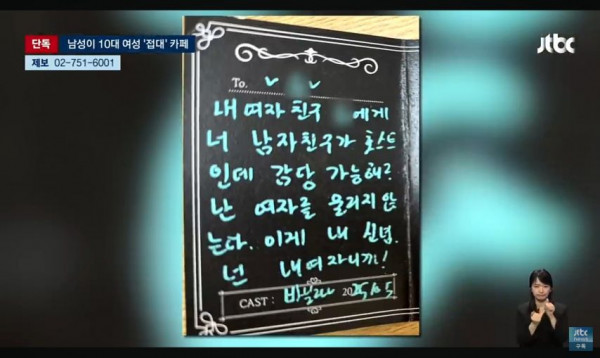 단독 남성이 10대 여성 '접대' 카페
제보 02-751-6001
jtbc
To.
내 여자친구 에게
너 남자친구가 호스트
인데 감당 가능해?
난 여자를 울리지 않
는다. 이게 내 신념.
넌 내 여자니까!
CAST : 바닐라
jtbc
news
구독